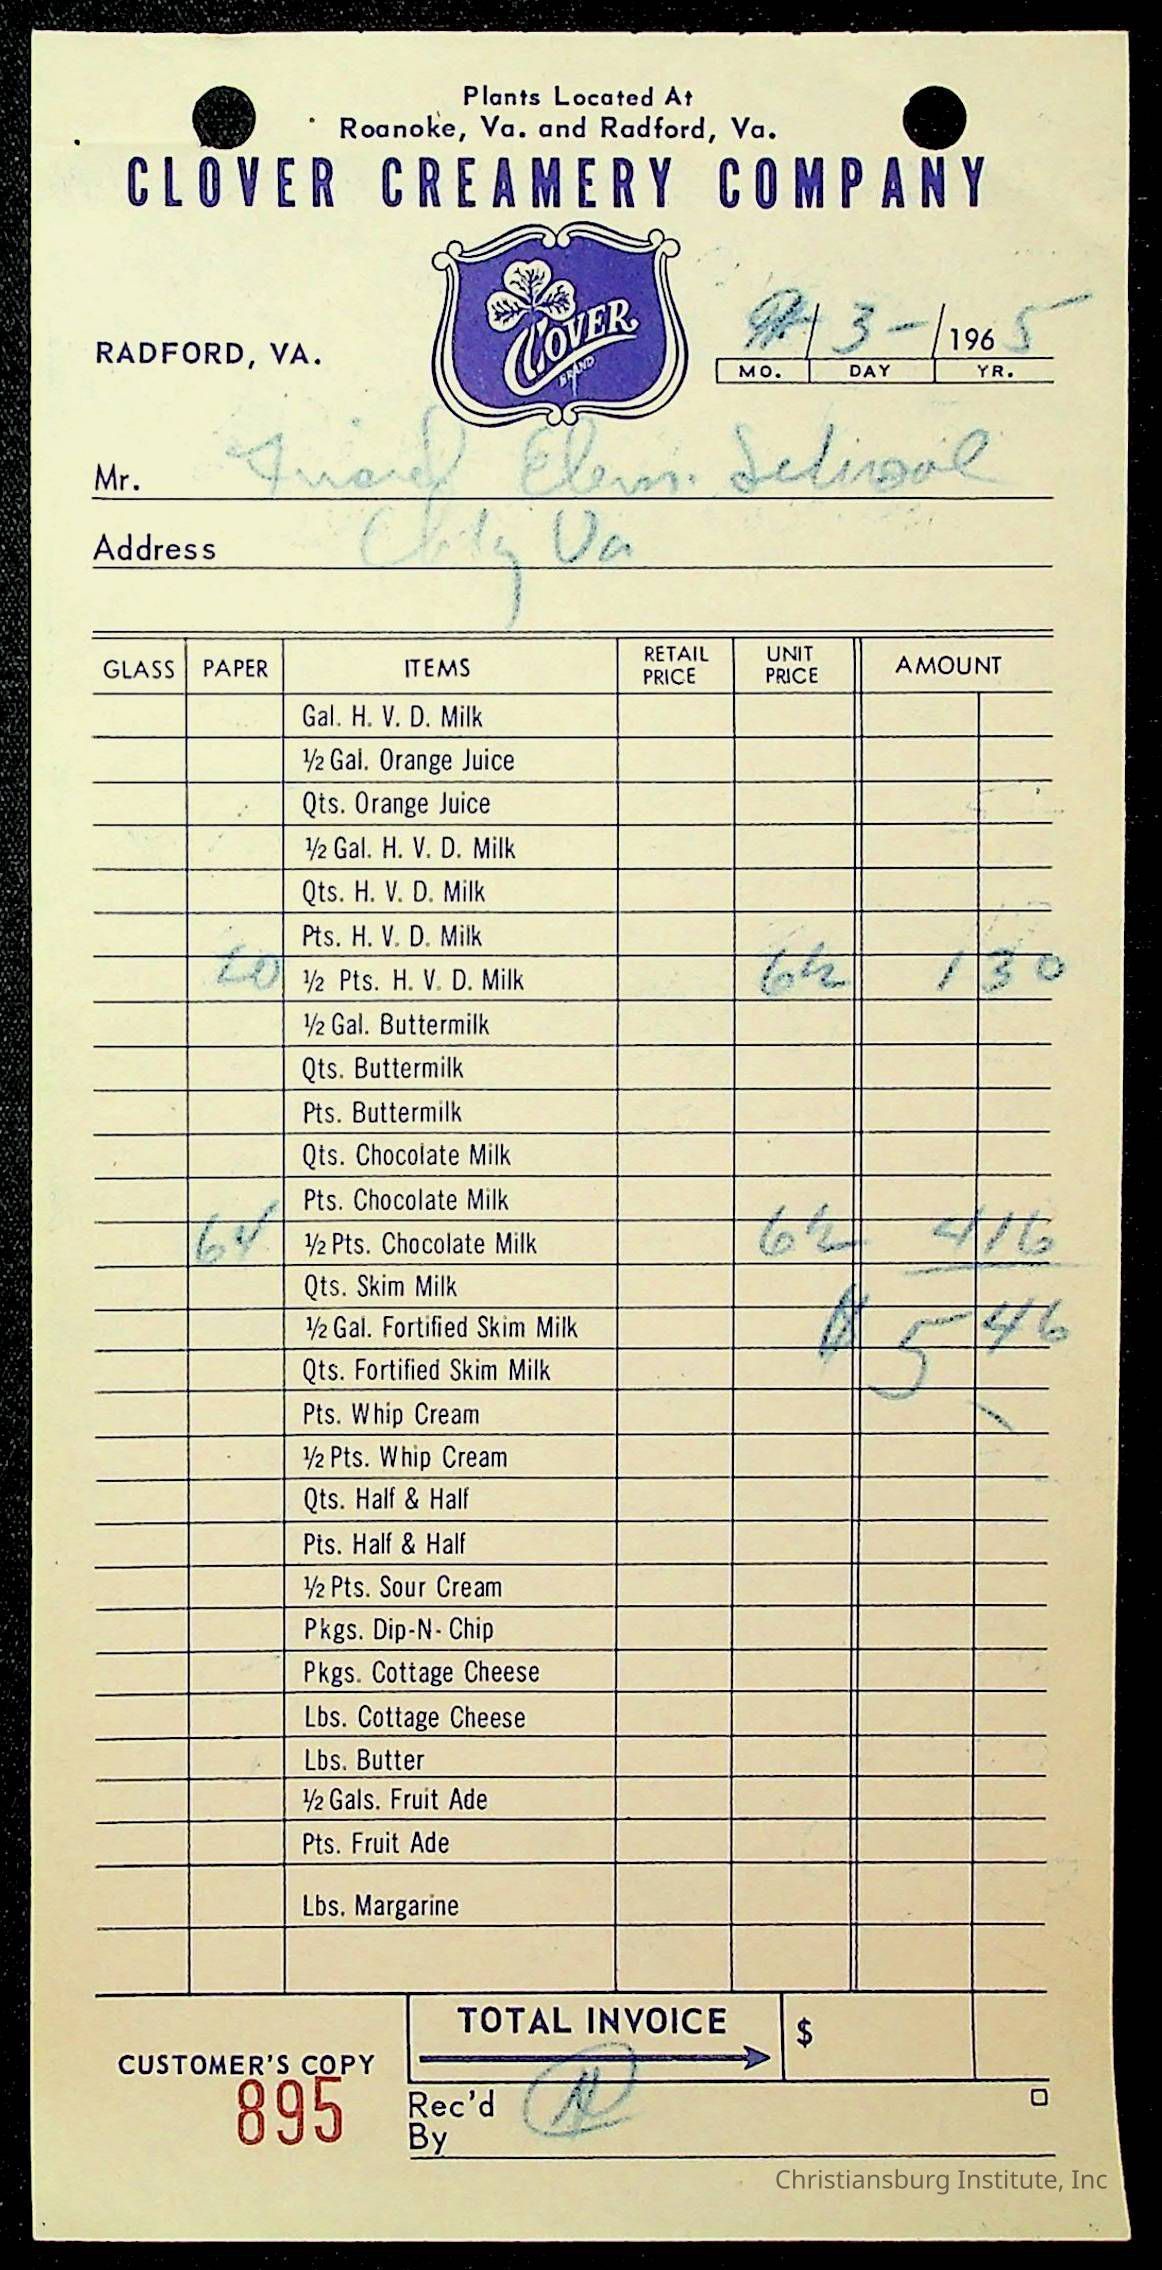 Plants Located At
Roanoke, Va. and Radford, Va.
CLOVER CREAMERY COMPANY
CLOVER
BRAND
RADFORD, VA.
3 - / 196 5
MO. DAY YR.
Mr. Friends Elem. School
Address City Va
GLASS PAPER ITEMS RETAIL PRICE UNIT PRICE AMOUNT
Gal. H. V. D. Milk
½ Gal. Orange Juice
Qts. Orange Juice
½ Gal. H. V. D. Milk
Qts. H. V. D. Milk
Pts. H. V. D. Milk
20 ½ Pts. H. V. D. Milk 6½ 1 30
½ Gal. Buttermilk
Qts. Buttermilk
Pts. Buttermilk
Qts. Chocolate Milk
Pts. Chocolate Milk
64 ½ Pts. Chocolate Milk 6½ 4 16
Qts. Skim Milk
½ Gal. Fortified Skim Milk $ 5 46
Qts. Fortified Skim Milk
Pts. Whip Cream
½ Pts. Whip Cream
Qts. Half & Half
Pts. Half & Half
½ Pts. Sour Cream
Pkgs. Dip-N-Chip
Pkgs. Cottage Cheese
Lbs. Cottage Cheese
Lbs. Butter
½ Gals. Fruit Ade
Pts. Fruit Ade
Lbs. Margarine
TOTAL INVOICE $
CUSTOMER'S COPY
895
Rec'd
By
Christiansburg Institute, Inc